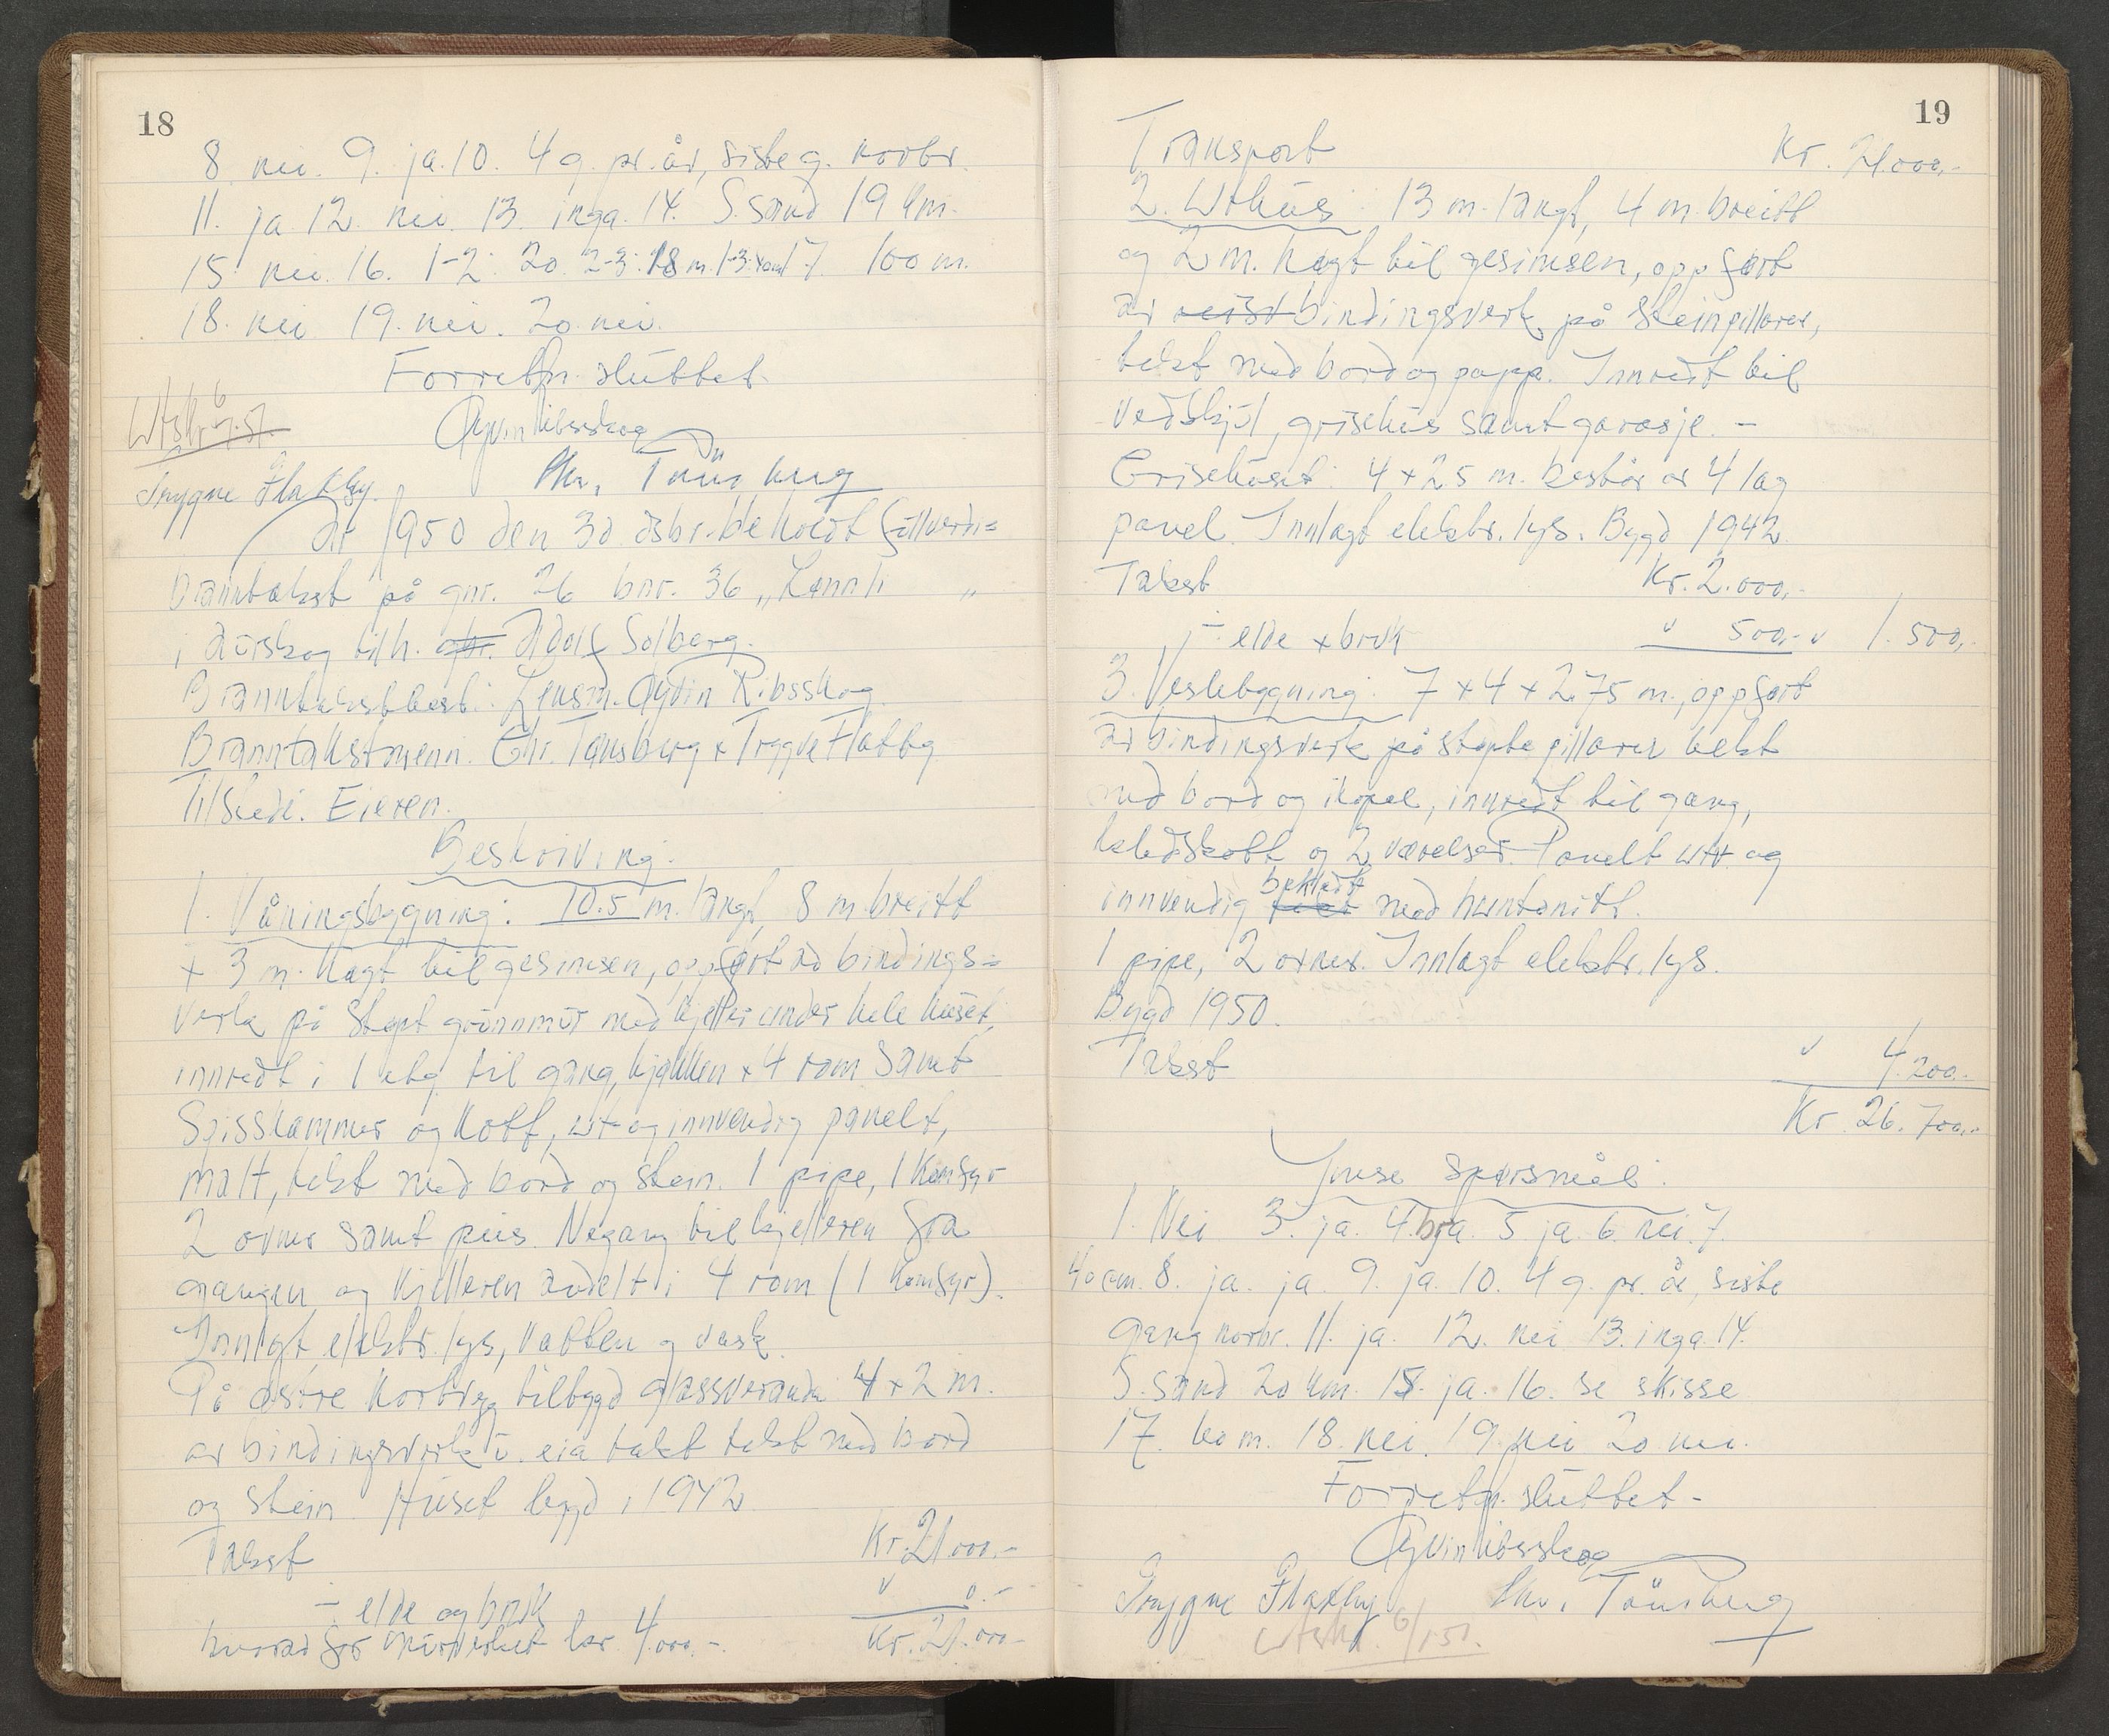 18
8 nei. 9. ja. 10. 4 g. pr. år, siste g. novbr.
11. ja 12. nei. 13. inga. 14. S. sand 19 km.
15 nei. 16. 1-2: 20. 2-3: 18 m. 1-3: 17. 100 m.
18. nei 19. nei. 20. nei.
Forretn. sluttet.
Utskr.
Øyvin Ribsskog
Trygve Flatby. Chr. Tønsberg
År 1950 den 30. dsbr. ble holdt fullverdi=
branntakst på gnr. 26 bnr. 36 „Lønnli"
i Aurskog tilh. Adolf Solberg.
Branntakstbest: Lensm. Øyvin Ribsskog
Branntakstmenn. Chr. Tønsberg + Trygve Flatby
Tilstede: Eieren.
Beskriving.
1. Våningsbygning: 10.5 m. langt, 8 m. breitt
+ 3 m. høgt til gesimsen, oppført av bindings=
verk på støpt grunnmur med kjeller under hele huset,
innredt i 1 etg. til gang, kjøkken + 4 rom samt
Spisskammer og kott, ut- og innvendig panelt,
malt, tekt med bord og stein. 1 pipe, 1 komfyr
2 ovner samt peis. Negang til kjelleren fra
gangen og kjelleren avdelt i 4 rom (1 komfyr).
Innlagt elektr. lys, vatten og vask.
På østre kortvegg tilbygd glassveranda 4 x 2 m.
av bindingsverk tekt med bord
og stein. Huset bygd i 1942
Takst Kr. 21.000.-
- elde og bruk " 0.-
hvorav for murverket kr. 4.000.- Kr. 21.000.-
19
Transport Kr. 21.000.-
2. Uthus: 13 m. langt, 4 m. breitt
og 2 m. høgt til gesimsen, oppført
av bindingsverk på steinpillarer,
tekt med bord og papp. Innredt til
vedskjul, grisehus samt garasje. -
Grisehuset: 4 x 2.5 m. består av 4 lag
panel. Innlagt elektr. lys. Bygd 1942.
Takst Kr. 2.000.-
- elde + bruk " 500.- " 1.500.-
3. Veslebygning: 7 x 4 x 2.75 m., oppført
av bindingsverk på støpte pillarer tekt
med bord og ikopal, innredt til gang,
kledskott og 2 værelser. Panelt utv. og
innvendig bekledt med huntonitt.
1 pipe, 2 ovner. Innlagt elektr. lys.
Bygd 1950.
Takst " 4.200.-
Kr. 26.700.-
Ymse spørsmål:
1. Nei 3. ja. 4. bra. 5 ja. 6. nei. 7.
40 cm. 8. ja. ja 9. ja. 10. 4 g. pr. år, siste
gang novbr. 11. ja. 12. nei 13. inga. 14.
S. sand 20 km. 15. ja. 16. se skisse
17. 60 m. 18. nei. 19. nei 20 nei.
Forretn. sluttet -
Øyvin Ribsskog
Trygve Flatby Chr. Tønsberg
Utskr. 6/1 51.